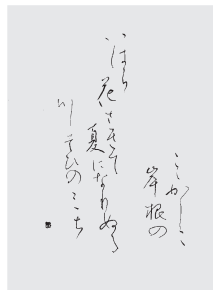 ここかしこ
岸根の
いはら花さきて
夏になりぬる
川そひのみち